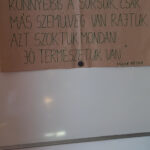 KÖNNYEBB A SORSUK, CSAK
MÁS SZEMÜVEG VAN RAJTUK.
AZT SZOKTUK MONDANI
JÓ TERMÉSZETÜK VAN.